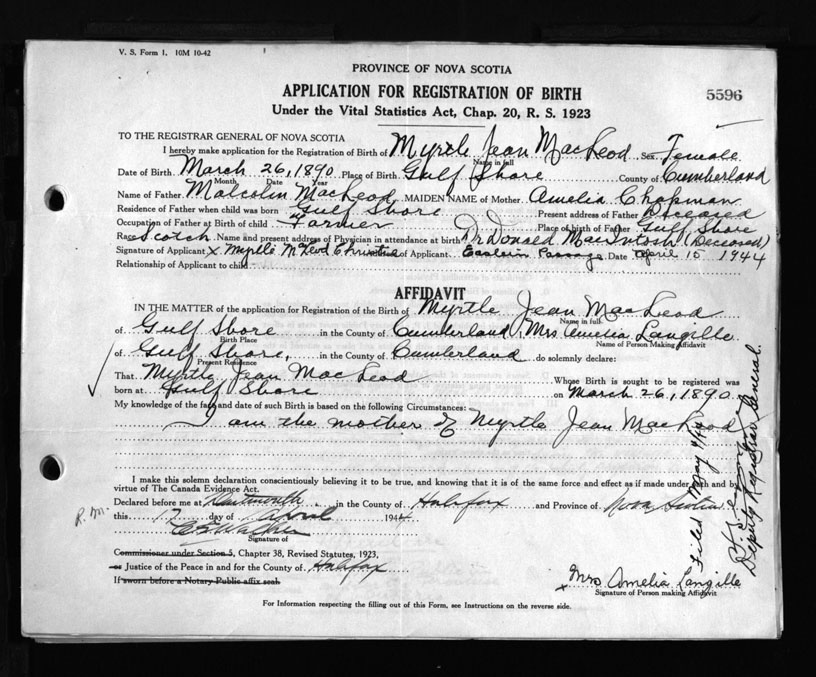 V. S. Form 1. 10M 10-42
PROVINCE OF NOVA SCOTIA
APPLICATION FOR REGISTRATION OF BIRTH
5596
Under the Vital Statistics Act, Chap. 20, R. S. 1923
TO THE REGISTRAR GENERAL OF NOVA SCOTIA
I hereby make application for the Registration of Birth of Myrtle Jean MacLeod Sex Female
Name in full
Date of Birth March 26, 1890 Place of Birth Gulf Shore County of Cumberland
Month Date Year
Name of Father Malcolm MacLeod MAIDEN NAME of Mother Amelia Chapman
Residence of Father when child was born Gulf Shore Present address of Father Deceased
Occupation of Father at Birth of child Farmer Place of birth of Father Gulf Shore
Race Scotch Name and present address of Physician in attendance at birth Dr Donald MacIntosh (Deceased)
Signature of Applicant x Myrtle McLeod Christie of Applicant Eastern Passage Date April 15 1944
Relationship of Applicant to child
AFFIDAVIT
IN THE MATTER of the application for Registration of the Birth of Myrtle Jean MacLeod
Name in full
of Gulf Shore in the County of Cumberland, Mrs Amelia Langille
Birth Place Name of Person Making Affidavit
of Gulf Shore, in the County of Cumberland do solemnly declare:
Present Residence
That Myrtle Jean MacLeod Whose Birth is sought to be registered was
born at Gulf Shore on March 26, 1890
My knowledge of the fact and date of such Birth is based on the following Circumstances:
I am the mother of Myrtle Jean MacLeod
I make this solemn declaration conscientiously believing it to be true, and knowing that it is of the same force and effect as if made under oath and by
virtue of The Canada Evidence Act.
Declared before me at Dartmouth in the County of Halifax and Province of Nova Scotia
this 17 day of April 1944
Signature of
Commissioner under Section 5, Chapter 38, Revised Statutes, 1923,
or Justice of the Peace in and for the County of Halifax
If sworn before a Notary Public affix seal.
Mrs Amelia Langille
Signature of Person making Affidavit
For Information respecting the filling out of this Form, see Instructions on the reverse side.
R. M.
Filed May 4/44
Deputy Registrar General.